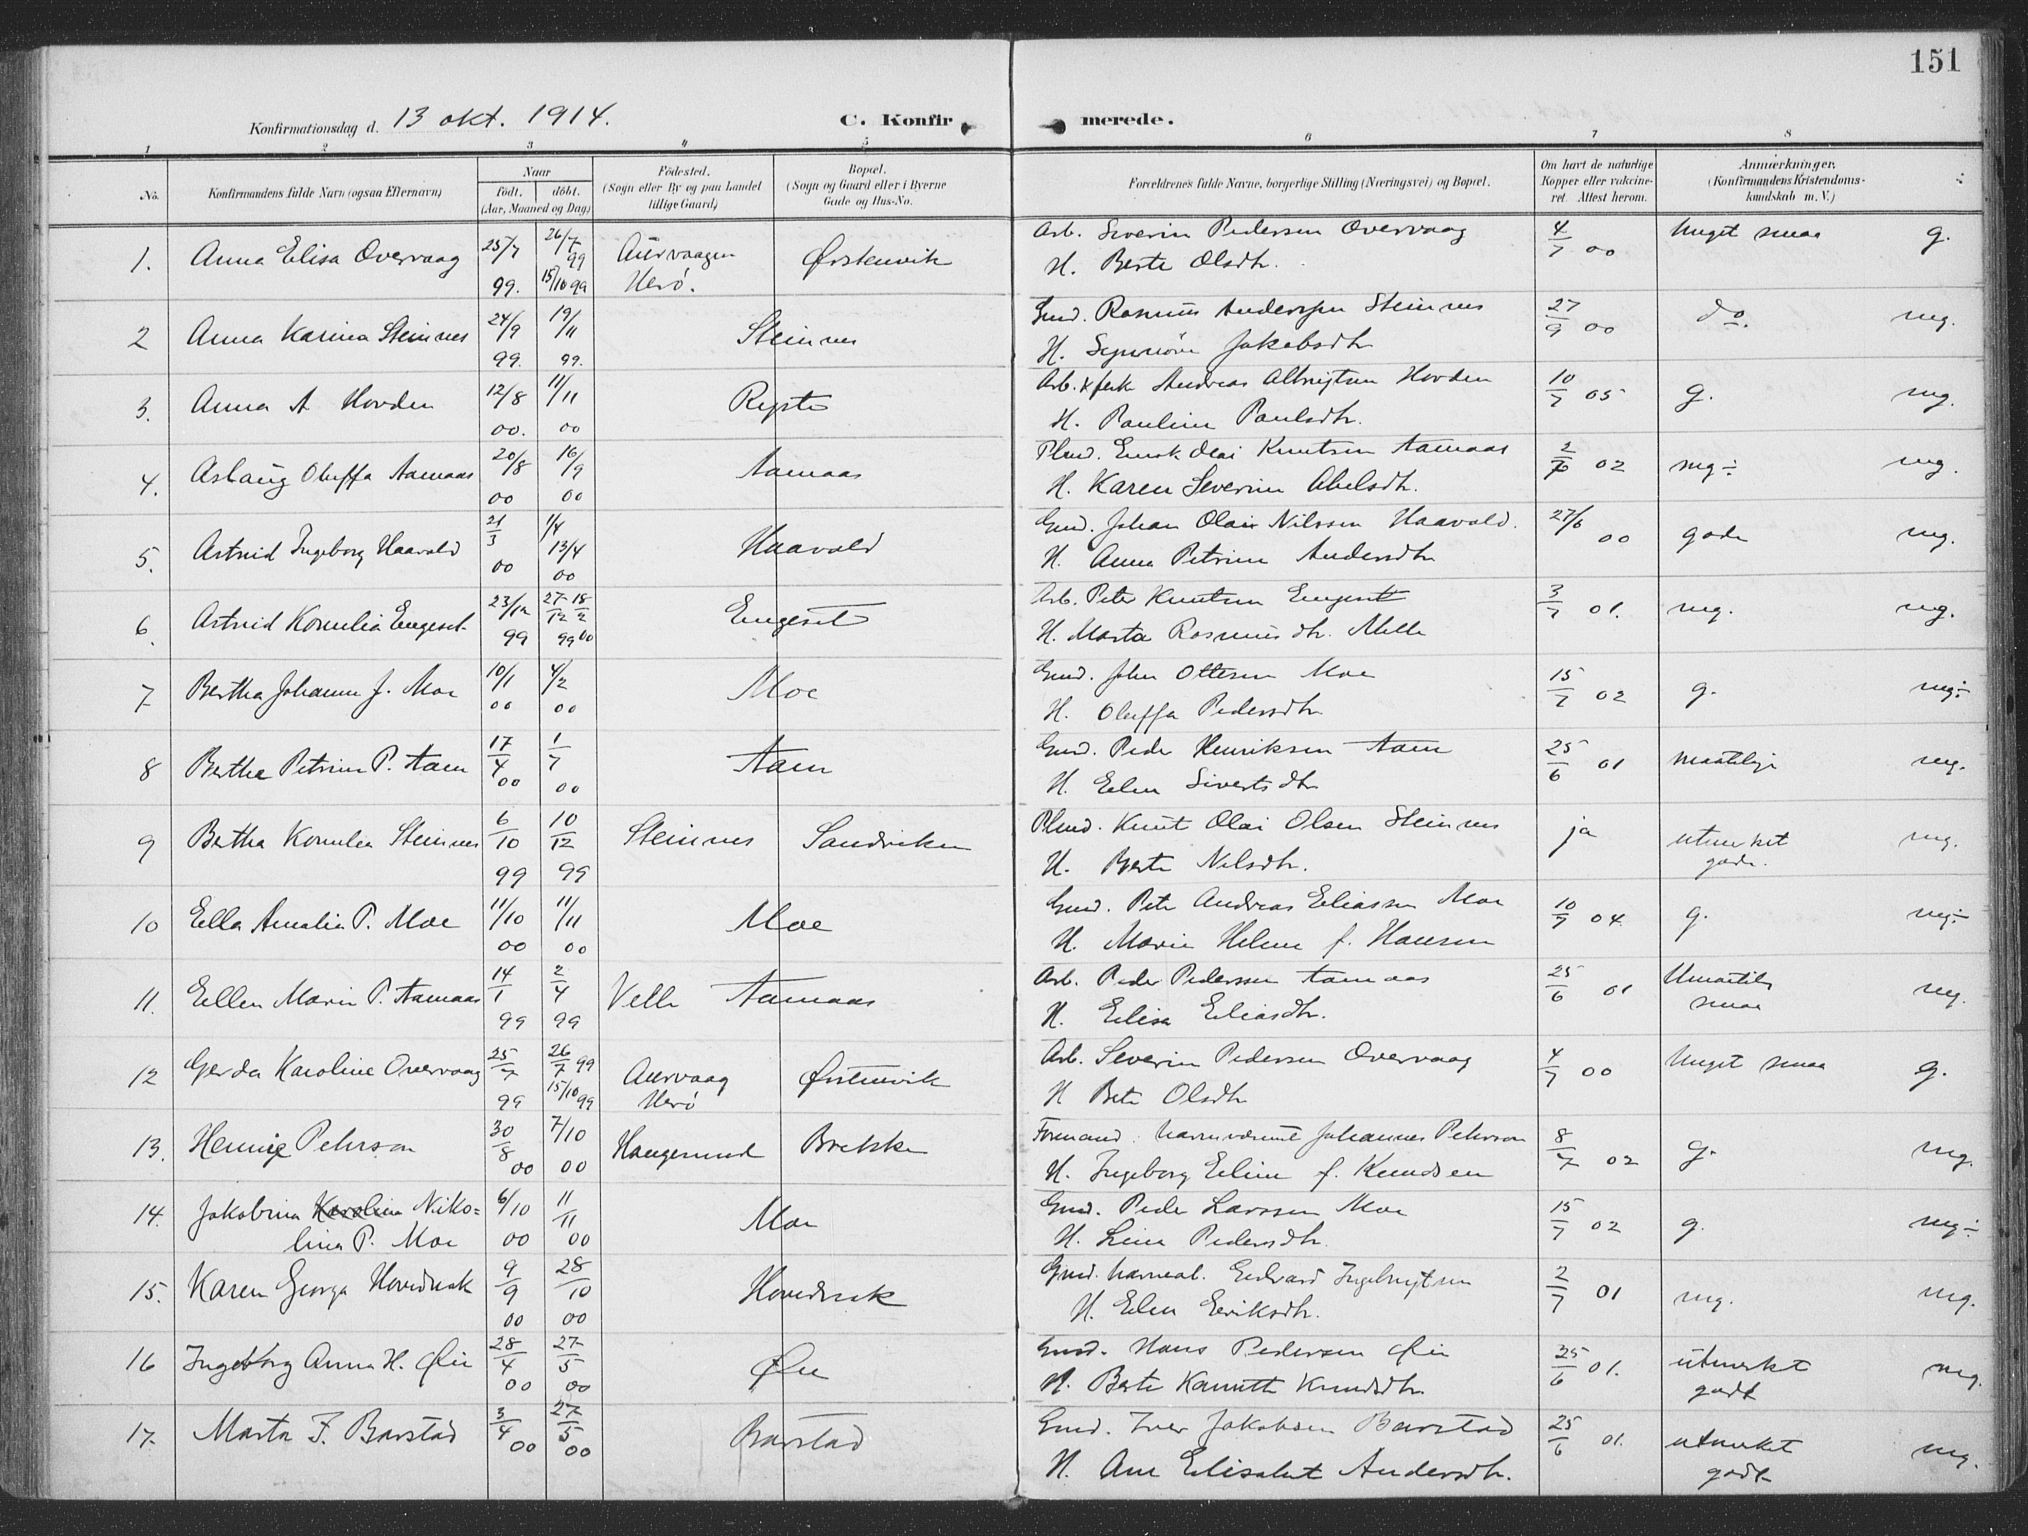 151
Konfirmationsdag d. 13 okt. 1914.
C. Konfirmerede.
1 2 3 4 5 6 7 8
No. Konfirmandens fulde Navn (ogsaa Efternavn) Naar født. døbt. (Aar, Maaned og Dag) Fødested. (Sogn eller By og paa Landet tillige Gaard) Bopæl. (Sogn og Gaard eller i Byerne Gade og Hus-No. Forældrenes fulde Navne, borgerlige Stilling (Næringsvei) og Bopæl. Om havt de naturlige Kopper eller vakcineret. Attest herom. Anmærkninger. (Konfirmandens Kristendomskundskab m. V.)
1. Anna Elisa Overvaag 25/7 99. 26/7 99 15/10 99 Aurvaagen Herø. Ørstenvik Arb. Severin Pedersen Overvaag 4/7 00 Meget smaa g.
H. Berte Olsdtr.
2 Anna Karina Steinnes 24/9 99. 19/11 99. Steinnes Gmd. Rasmus Anderssen Steinnes 27/9 00 do. mg.
H. Synnøve Jakobsdtr
3. Anna A Hovden 12/8 00. 11/11 00 Rysto Arb. x fisk Andreas Albrigtsen Hovden 10/7 05 g. mg.
H. Pauline Paulsdtr.
4. Aslaug Oluffa Aamaas 20/8 00 16/9 00 Aamaas Plmd. Knutsen Aamaas 2/7 02 mg÷ mg.
H. Karen Severine Abelsdtr.
5. Astrid Ingeborg Haavold 21/3 00 1/4 13/4 00 Haavold Gmd. Johan Olai Nilssen Haavold. 27/6 00 gode mg.
H. Anna Petrine Andersdtr
6. Astrid Kornelia Engeset 23/12 99 27/12 99 18/2 00 Engeset Arb. Peter Knutsen Engeset 3/7 01. mg. mg.
H. Marta Rasmusdtr. Melle
7. Bertha Johanne J. Moe 10/1 00 4/2 00 Moe Gmd. John Ottesen Moe 15/7 02 g. mg÷
H. Oluffa Pedersdtr.
8 Berthe Petrine P. Aam 17/4 00 1/7 00 Aam Gmd. Peder Henriksen Aam 25/6 01 maatelige mg.
H. Elen Sivertsdtr
9 Bertha Kornelia Steinnes 6/10 99 10/12 99 Steinnes Sandviken Plmd. Knut Olai Olsen Steinnes ja utmerket gode. mg.
H. Berte Nilsdtr.
10 Ella Amalia P. Moe 11/10 00 11/11 00 Moe Gmd. Peter Andreas Eliassen Moe 10/7 04. g. mg÷
H. Marie Helene f. Hansen
11. Ellen Marie P. Aamaas 14/1 99 2/4 99 Velle Aamaas Arb. Peder Pederssen Aamaas 25/6 01 Umaatelig smaa mg.
H. Elisa Eliasdtr.
12 Gerda Karoline Overvaag 25/7 99 26/7 99 15/10 99 Aurvaag Herø Ørstenvik Arb. Severin Pedersen Overvaag 4/7 00 Meget smaa g.
H Berte Olsdtr
13. Hennie Pehrson 30/8 00 7/10 00 Haugesund Brekke Formand. Johannes Pehrson 8/7 02 g. mg.
H. Ingeborg Eline f. Knudsen
14. Jakobina Karolina Niko= 6/10 00 11/11 00 Moe Gmd. Peder Larssen Moe 15/7 02 g. mg÷
lina P. Moe H. Lina Pedersdtr.
15. Karen Georga Hovdenak 9/9 00 28/10 00 Hovdenak Gmd. Edvard Ingebrigtsen 2/7 01 mg. mg.
H. Elen Eriksdtr.
16 Ingeborg Anna H. Øie 28/4 00 27/5 00 Øie Gmd. Hans Pedersen Øie 25/6 01. utmerket godt mg.
H. Berte Kanutte Knudsdtr.
17. Marta I. Barstad 3/4 00 27/5 00 Barstad Gmd. Iver Jakobsen Barstad 25/6 01. utmerket godt mg.
H. Ane Elisabet Andersdtr.